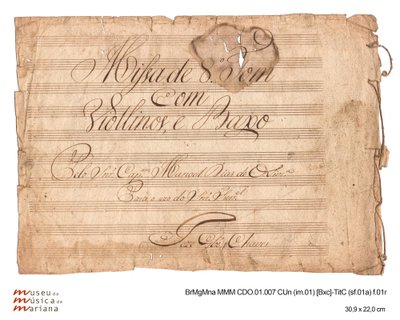 Missa de 8.º Tom
com
Viollinos, e Baxo
Pelo Snr. Cap.m Manoel Dias de Olivr.ª
Para o uso do Snr.
Joze Chaves
museu da
música de
mariana
BrMgMna MMM CDO.01.007 CUn (im.01) [Bxc]-TitC (sf.01a) f.01r
30,9 x 22,0 cm